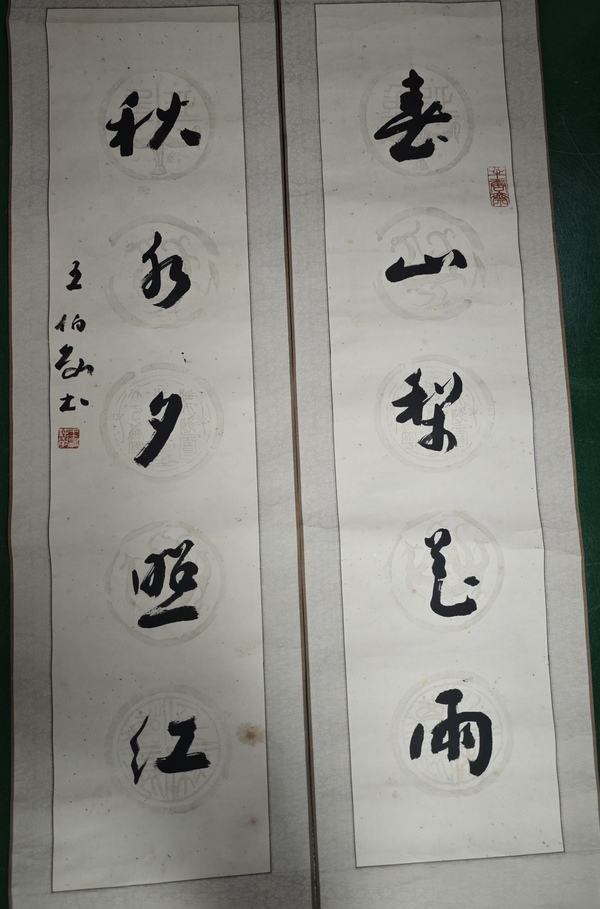 春山梨花雨
秋水夕照红
王伯敏书